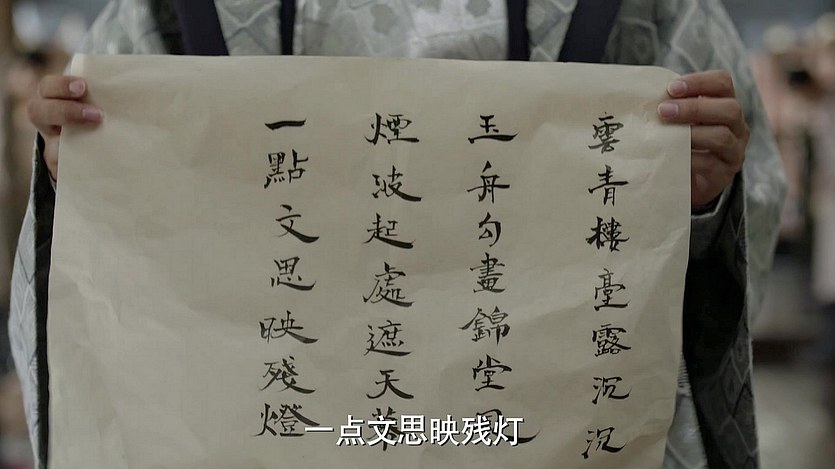 雲青樓臺露沉沉
玉舟勾畫錦堂風
煙波起處遮天
一點文思映殘燈
一点文思映残灯